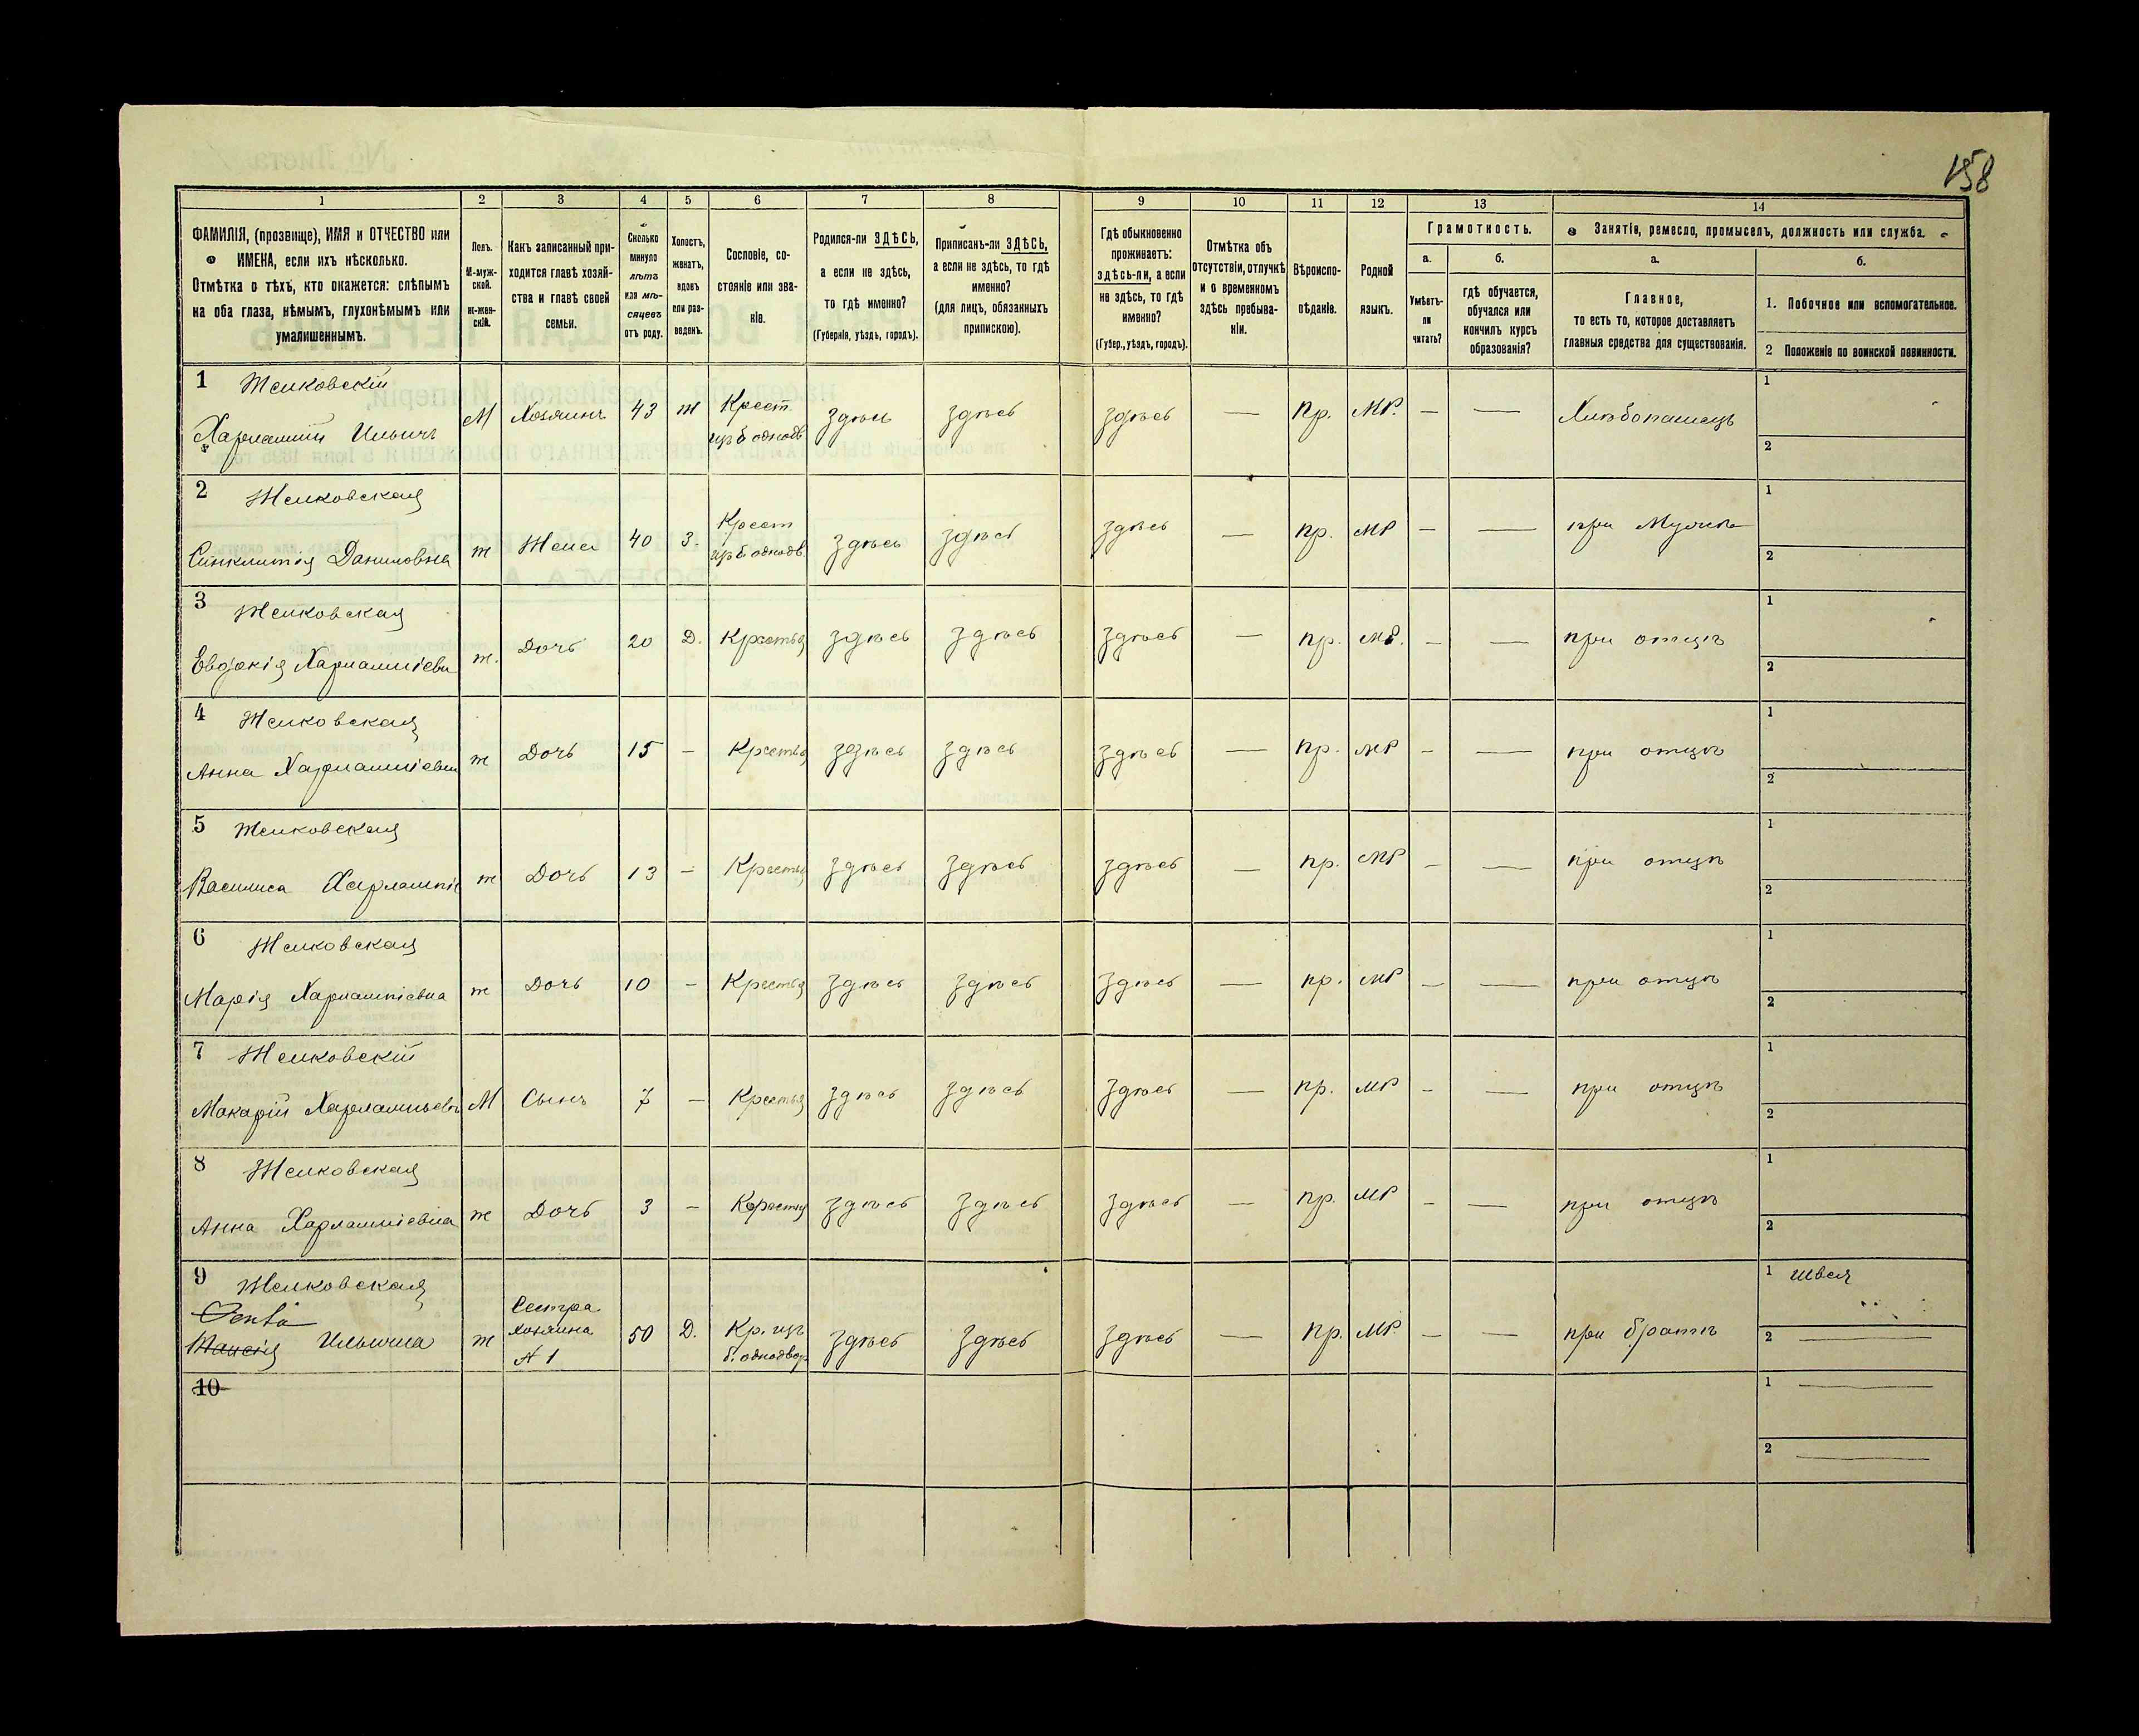 158
1 2 3 4 5 6 7 8 9 10 11 12 13 14
ФАМИЛІЯ, (прозвище), ИМЯ и ОТЧЕСТВО или
ИМЕНА, если ихъ нѣсколько.
Отмѣтка о тѣхъ, кто окажется: слѣпымъ
на оба глаза, нѣмымъ, глухонѣмымъ или
умалишеннымъ.
Полъ.
М-муж-
ской.
Ж-жен-
скій.
Какъ записанный при-
ходится главѣ хозяй-
ства и главѣ своей
семьи.
Сколько
минуло
лѣтъ
или мѣ-
сяцевъ
отъ роду.
Холостъ,
женатъ,
вдовъ
или раз-
веденъ.
Сословіе, со-
стояніе или зва-
ніе.
Родился-ли ЗДѢСЬ,
а если не здѣсь,
то гдѣ именно?
(Губернія, уѣздъ, городъ).
Приписанъ-ли ЗДѢСЬ,
а если не здѣсь, то гдѣ
именно?
(для лицъ, обязанныхъ
припискою).
Гдѣ обыкновенно
проживаетъ:
здѣсь-ли, а если
не здѣсь, то гдѣ
именно?
(Губер., уѣздъ, городъ).
Отмѣтка объ
отсутствіи, отлучкѣ
и о временномъ
здѣсь пребыва-
ніи.
Вѣроиспо-
вѣданіе.
Родной
языкъ.
Грамотность.
а.
Умѣетъ-
ли
читать?
б.
гдѣ обучается,
обучался или
кончилъ курсъ
образованія?
Занятіе, ремесло, промыселъ, должность или служба.
а.
Главное,
то есть то, которое доставляетъ
главныя средства для существованія.
б.
1. Побочное или вспомогательное.
2 Положеніе по воинской повинности.
1 Желковскій
Харлампій Ильичъ М Хозяинъ 43 ж Крест. здѣсь здѣсь здѣсь — Пр. МР. — — Хлѣбопашецъ 1
изъ б. однодв. 2
2 Желковская
Синклитія Даниловна ж Жена 40 З. Крест здѣсь здѣсь здѣсь — пр. МР — — при Мужѣ 1
изъ б. однодв. 2
3 Желковская
Евдокія Харлампіевн ж. Дочь 20 Д. Крестья здѣсь здѣсь здѣсь — пр. МР. — — при отцѣ 1
2
4 Желковская
Анна Харлампіевна ж Дочь 15 — Крестья здѣсь здѣсь здѣсь — пр. МР — — при отцѣ 1
2
5 Желковская
Василиса Харлампіе ж Дочь 13 — Крестья здѣсь здѣсь здѣсь — пр. МР — — при отцѣ 1
2
6 Желковская
Марія Харлампіевна ж Дочь 10 — Крестья здѣсь здѣсь здѣсь — пр. МР — — при отцѣ 1
2
7 Желковскій
Макарій Харлампьевъ М Сынъ 7 — Крестья здѣсь здѣсь здѣсь — пр. МР — — при отцѣ 1
2
8 Желковская
Анна Харлампіевна ж Дочь 3 — Крестья здѣсь здѣсь здѣсь — пр. МР — — при отцѣ 1
2
9 Желковская
Ильична ж Сестра 50 Д. Кр. изъ здѣсь здѣсь здѣсь — пр. МР. — — при братѣ 1 швея
хозяина б. однодвор 2 —
№ 1
10 1 —
2 —